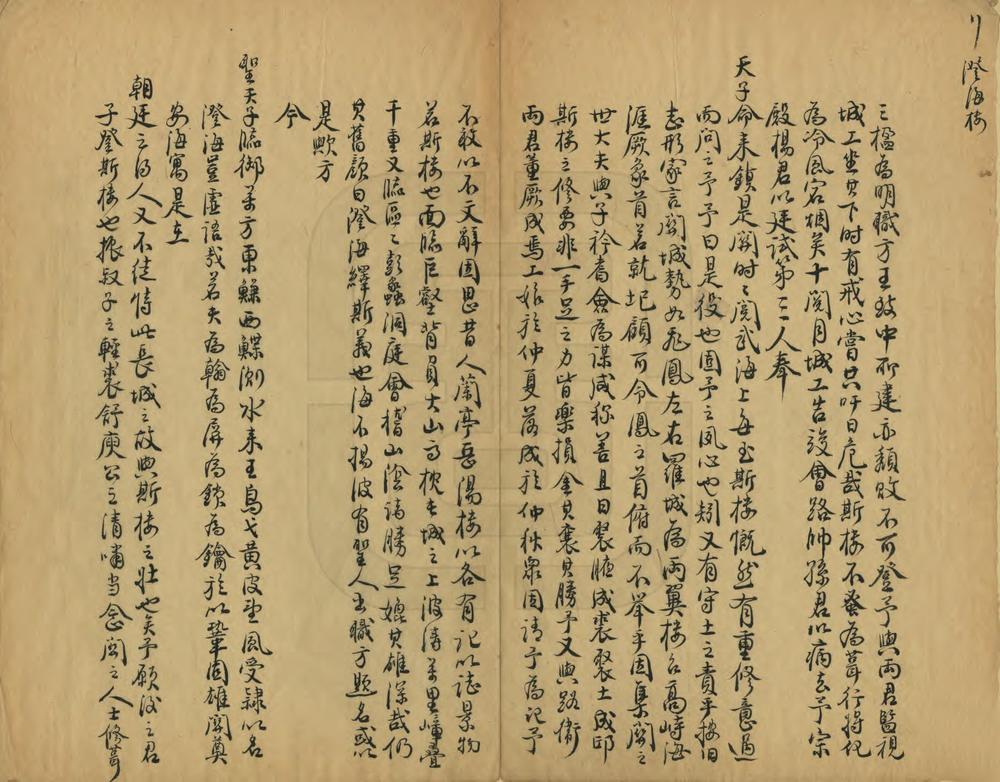 澄海楼
三楹為明職方王致中所建亦頽敗不可登予與兩君監視
城工坐其下時有戒心嘗共吁曰危哉斯楼不蚤為葺行将化
為冷風宕烟矣十閲月城工告竣會路帅孫君以病去予宗
殿楊君以廷試第三人奉
天子命来鎮是関時時閲武海上每至斯楼慨然有重修意過
而問之予予曰是役也固予之夙心也矧又有守土之責乎按旧
志形家言関城勢如飛鳳左右羅城為両翼楼台高峙海
涯厥象首若就圮顧可令鳳之首俯而不举乎因集関之
世大夫與子衿耆會為謀咸称善且曰裘腋成裘聚土成邱
斯楼之修要非一手足之力皆樂損金其襄其勝予又與路衛
两君董厥成焉工始於仲夏落成於仲秋衆固請予為記予
不敢以不文辭因思昔人蘭亭岳陽楼以各有記以誌景物
若斯楼也面臨巨壑背負大山高枕長城之上波涛萬里嶂疊
千重又臨區區彭蠡洞庭會稽山陰諸勝足媲其雄深哉仍
其舊顔曰澄海繹斯義也海不揚波有聖人出職方題名或以
是歟方
今
聖天子臨御萬方東鰈西鰈測水来王島弋黄皮望風受隷以名
澄海豈虚語哉若夫為翰為屏為鎖為鑰於以鞏固雄関奠
安海寓是在
朝廷之得人又不徒恃此長城之故與斯楼之壮也矣予願後之君
子登斯楼也振叔子之輕裘舒庾公之清嘯当念関之人士修葺